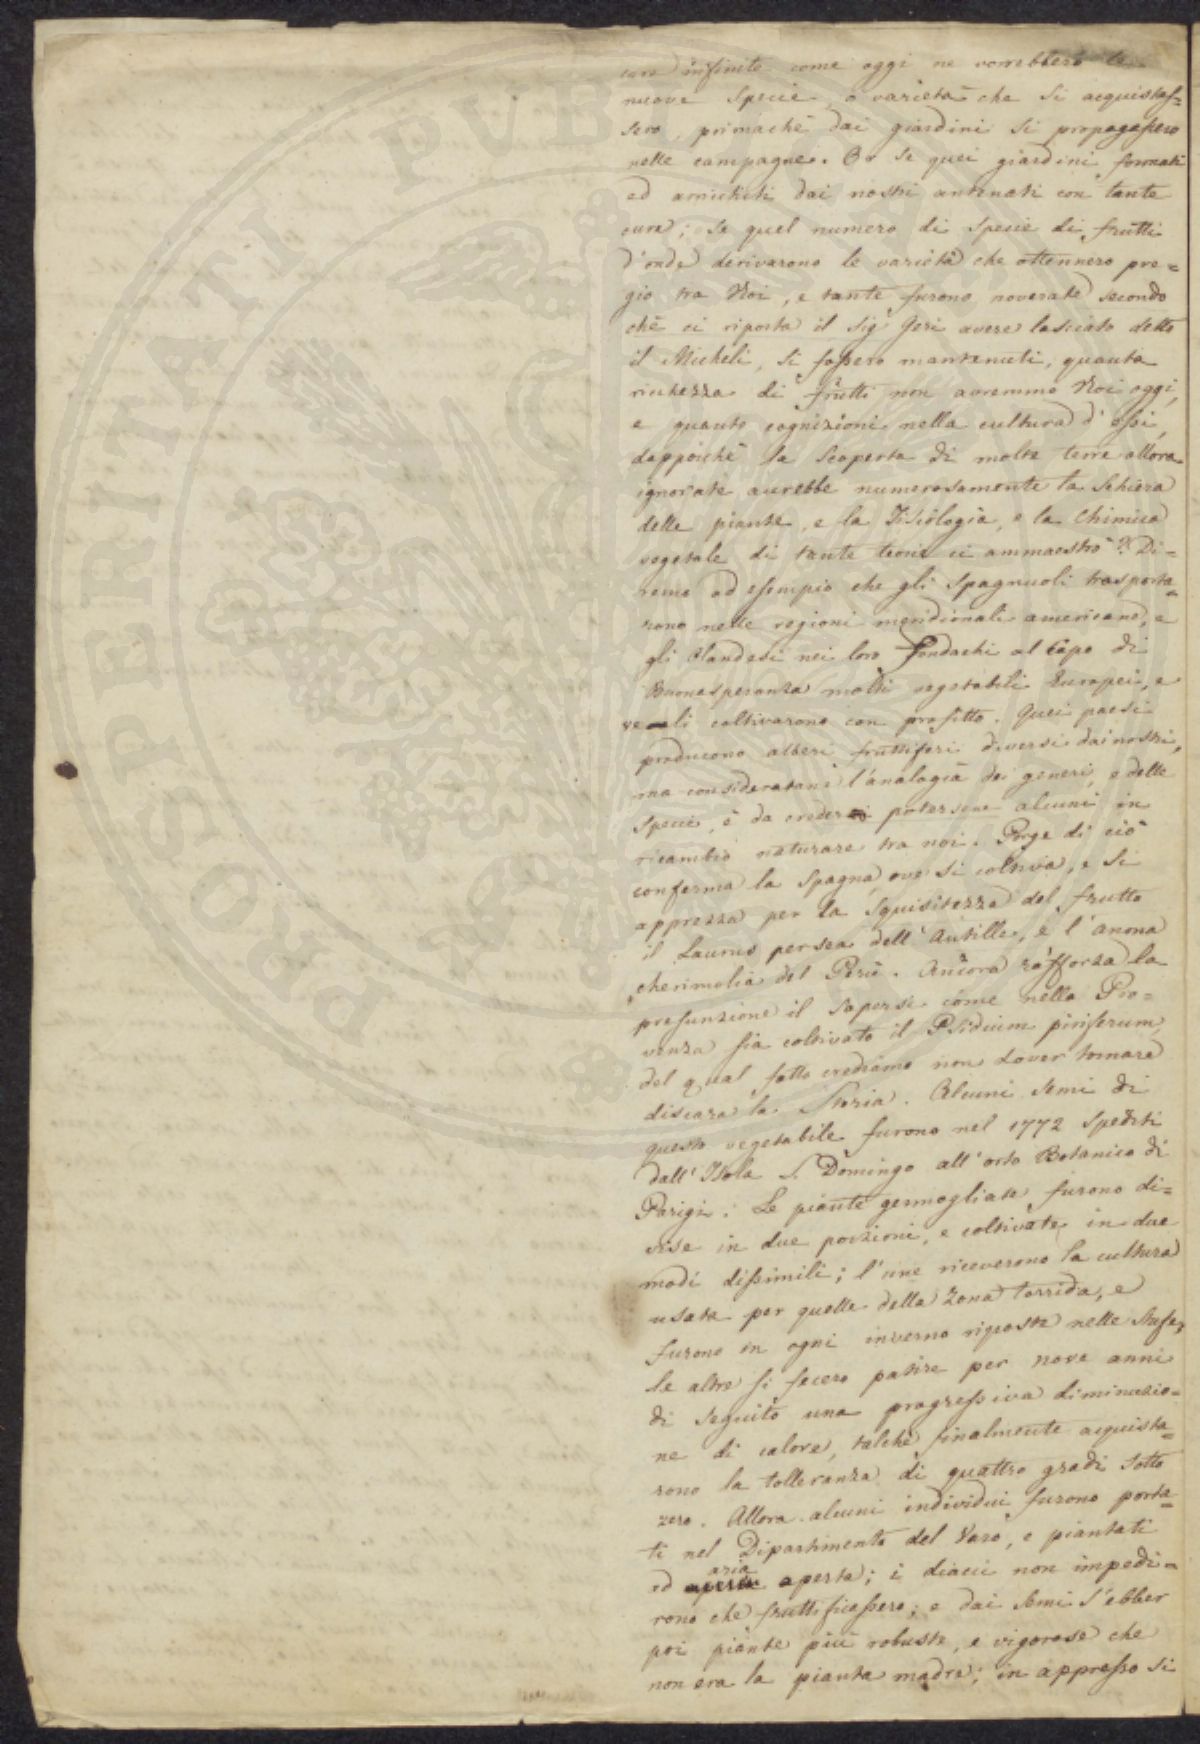 cure infinite come oggi ne vorrebbero le
nuove specie, o varietà che si acquistas=
sero, primachè dai giardini si propagassero
nelle campagne. Or se quei giardini formati
ed arricchiti dai nostri antenati con tante
cure; se quel numero di specie di frutti
d'onde derivarono le varietà che ottennero pre=
gio tra Noi, e tante furono noverate secondo
chè ci riporta il Sig Geri avere lasciato detto
il Micheli, si fossero mantenuti, quanta
ricchezza di frutti non avremmo Noi oggi,
e quante cognizioni nella cultura d'essi,
dappoichè la scoperta di molte terre allora
ignorate avrebbe numerosamente la schiera
delle piante, e la Fisiologia, e la Chimica
vegetale di tante teorie ci ammaestrò? Di=
remo ad esempio che gli Spagnuoli trasporta=
rono nelle regioni meridionali americane, e
gli Olandesi nei loro fondachi al Capo di
Buonesperanza molti vegetabili Europei, e
veli coltivarono con profitto. Quei paesi
producono alberi fruttiferi diversi dai nostri,
ma consideratane l'analogia dei generi, e delle
specie, è da creder potersene alcuni in
ricambio naturare tra noi. Porge di ciò
conferma la Spagna ove si coltiva, e si
apprezza per la squisitezza del frutto
il Laurus persea dell'Antille, e l'anona
cherimolia del Perù. Ancora rafforza la
presunzione il sapersi come nella Pro=
venza sia coltivato il Psidium piriferum,
del qual fatto crediamo non dover tornare
discara la Storia. Alcuni semi di
questo vegetabile furono nel 1772 spediti
dall'Isola S. Domingo all'orto Botanico di
Parigi. Le piante germogliate furono di=
vise in due porzioni, e coltivate in due
modi dissimili; l'une riceverono la cultura
usata per quelle della Zona Torrida, e
furono in ogni inverno riposte nelle stufe,
le altre si fecero patire per nove anni
di seguito una progressiva diminuzio=
ne di calore, talchè finalmente acquista=
rono la tolleranza di quattro gradi sotto
zero. Allora alcuni individui furono porta=
ti nel Dipartimento del Varo, e piantati
ad aria aperta; i diacci non impedi=
rono che fruttificassero; e dai semi s'ebber
poi piante più robuste, e vigorose che
non era la pianta madre; in appresso si